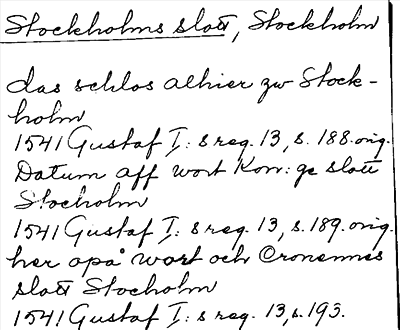 Stockholms slott, Stockholm
das schlos alhier zw Stock-
holm
1541 Gustaf I: s reg. 13, s. 188. orig.
Datum aff wort Kon: ge slott
Stocholm
1541 Gustaf I: s reg. 13, s. 189. orig.
her opå wort och Cronennes
slott Stocholm
1541 Gustaf I: s reg. 13, s. 193.